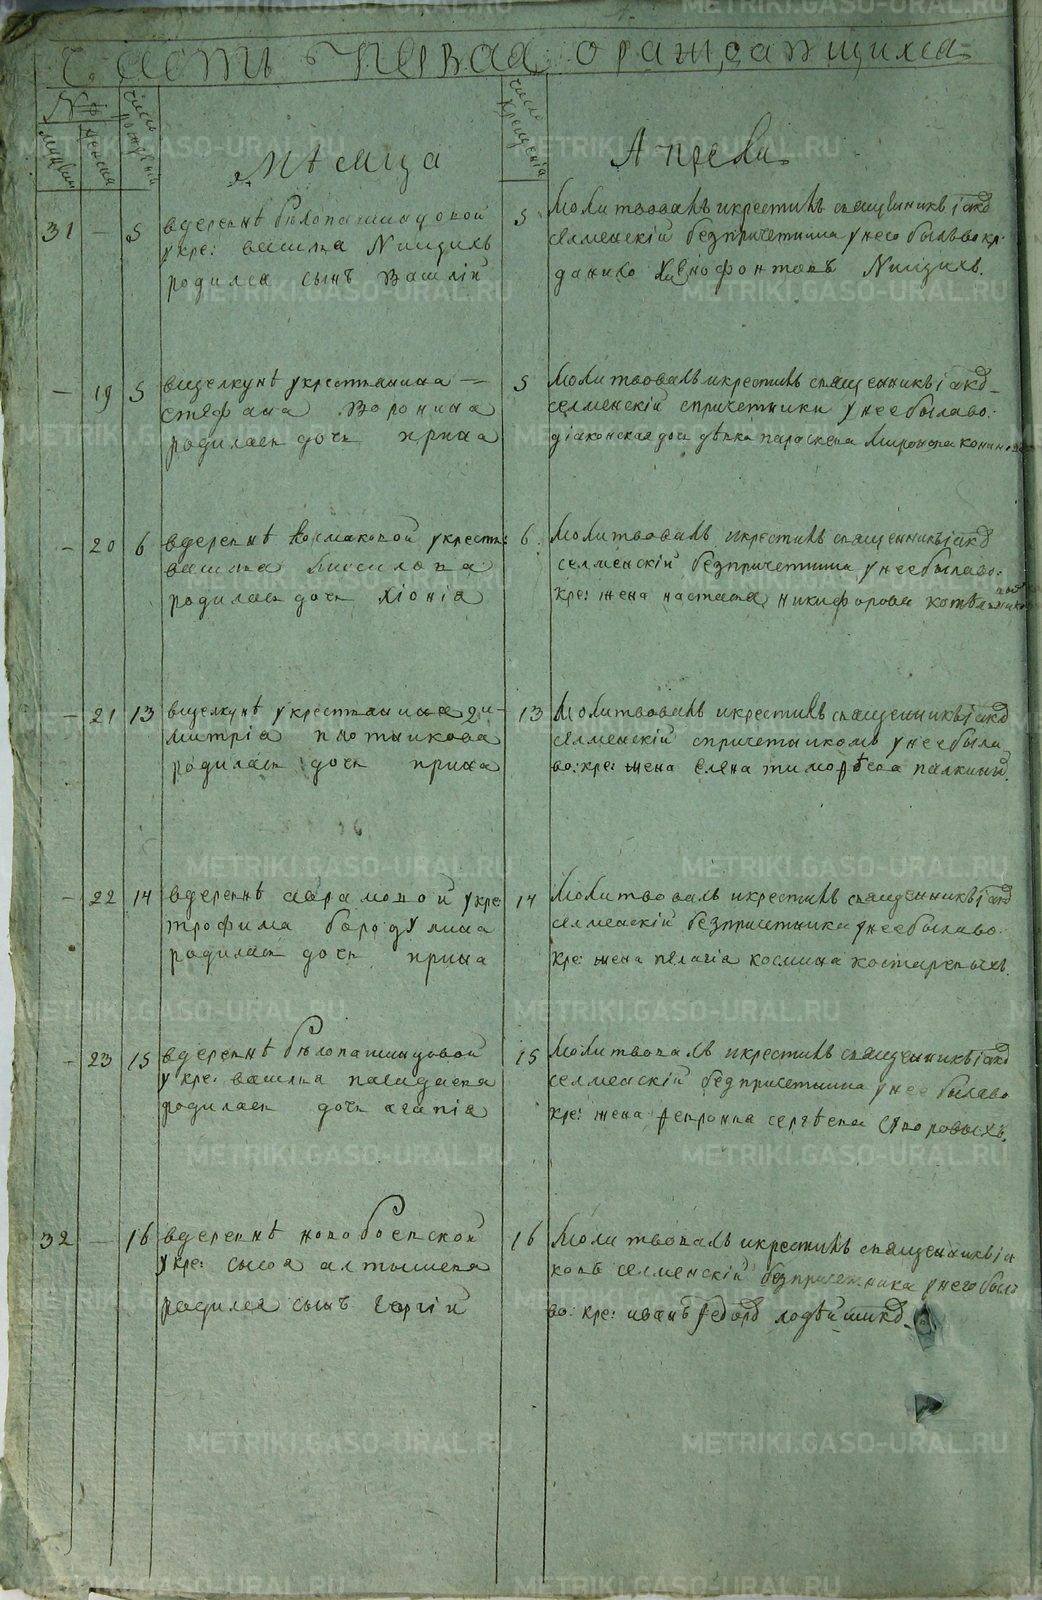 METRIKI.GASO-URAL.RU
Часть Первая ораждающихся
№
мужеска
женска
число рождения
Мѣсяца
число крещения
Апреля
31 — 5
вдеревнѣ бѣлопашинцовой
укре: василья Ницихъ
родился сынъ Василій
5
Молитвовалъ икрестилъ священникъ іакѡ
селменскій безпричетника унего былъ вокр.
данило Ксенофонтовъ Ницихъ.
— 19 5
вщелкунѣ укрестьянина —
стефана Воронина
родилась дочь ирина
5
Молитвовалъ икрестилъ священникъ іакѡ
селменскій спричетники унее былаво:
діаконская дочь дѣвка параскева Миронова
— 20 6
вдеревнѣ укрестья:
василья Киселева
родилась дочь хіонія
6
Молитвовалъ икрестилъ священникъ іакѡ
селменскій безпричетника унее былаво:
кре: жена настасья никифорова
— 21 13
вщелкунѣ укрестьянина ди-
митрія плотникова
родилась дочь ирина
13
Молитвовалъ икрестилъ священникъ іакѡ
селменскій спричетникомъ унее была
во: кре: жена елена тимофѣева палкиныхъ.
— 22 14
вдеревнѣ аврамовой укре
трофима бородулина
родилась дочь ирина
14
Молитвовалъ икрестилъ священникъ іакѡ
селменскій безпричетника унее былаво
кре: жена пелагія космина костаревыхъ.
— 23 15
вдеревнѣ бѣлопашинцовой
укре: василья
родилась дочь агапія
15
Молитвовалъ икрестилъ священникъ іакѡ
селменскій безпричетника унее былаво
кре: жена февронья сергѣева суворовыхъ.
32 — 16
вдеревнѣ новобоевской
укре: сысоя алтышева
родился сынъ Георгій
16
Молитвовалъ икрестилъ священникъ іа
ковъ селменскій безпричетника унего былъ
во: кре: иванъ федоровъ